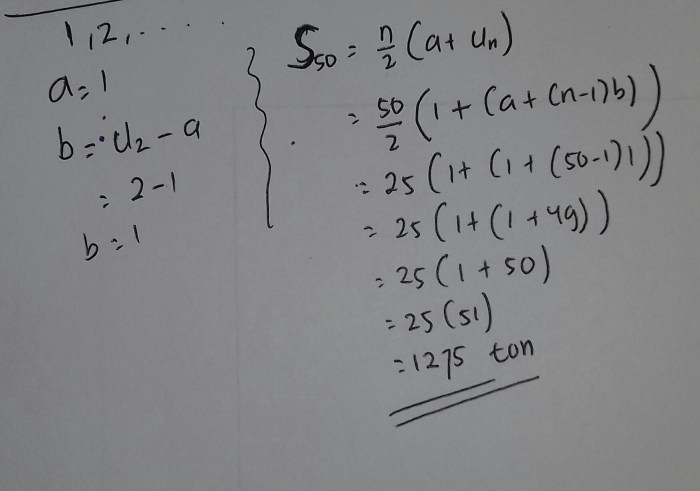 1,2,.....
a=1
b= U₂-a
= 2-1
b=1
S₅₀ = n/2 (a+ Uₙ)
= 50/2 (1 + (a + (n-1)b))
= 25 (1+ (1 + (50-1)1))
= 25 (1+ (1+49))
= 25 (1 + 50)
= 25 (51)
= 1275 ton